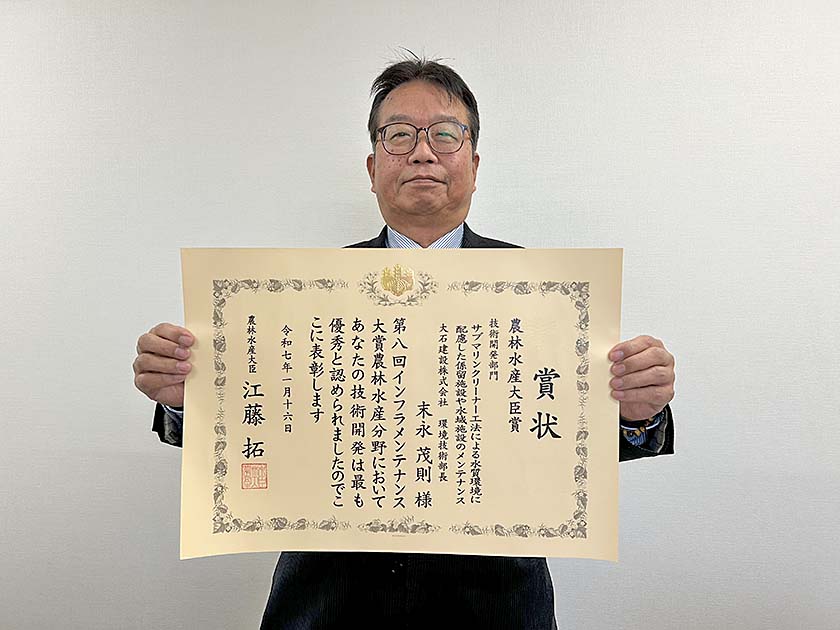 賞状
農林水産大臣賞
技術開発部門
サブマリンクリーナー工法による水質環境に
配慮した係留施設や水域施設のメンテナンス
大石建設株式会社 環境技術部長
末永茂則様
第八回インフラメンテナンス
大賞農林水産分野において
あなたの技術開発は最も
優秀と認められましたのでこ
こに表彰します
令和七年一月十六日
農林水産大臣 江藤拓